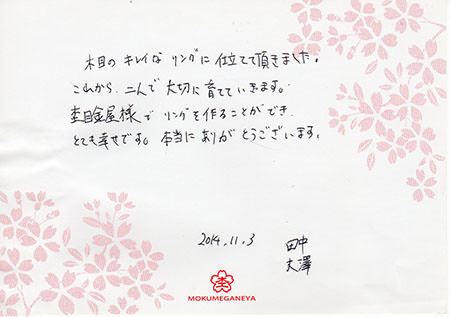 木目の キレイな リングに 仕立てて頂きました。
これから、二人で 大切に育てていきます。
杢目金屋様で リングを作ることができ
とても幸せです。本当に ありがとうございます。
2014.11.3
田中
大澤
杢
MOKUMEGANEYA